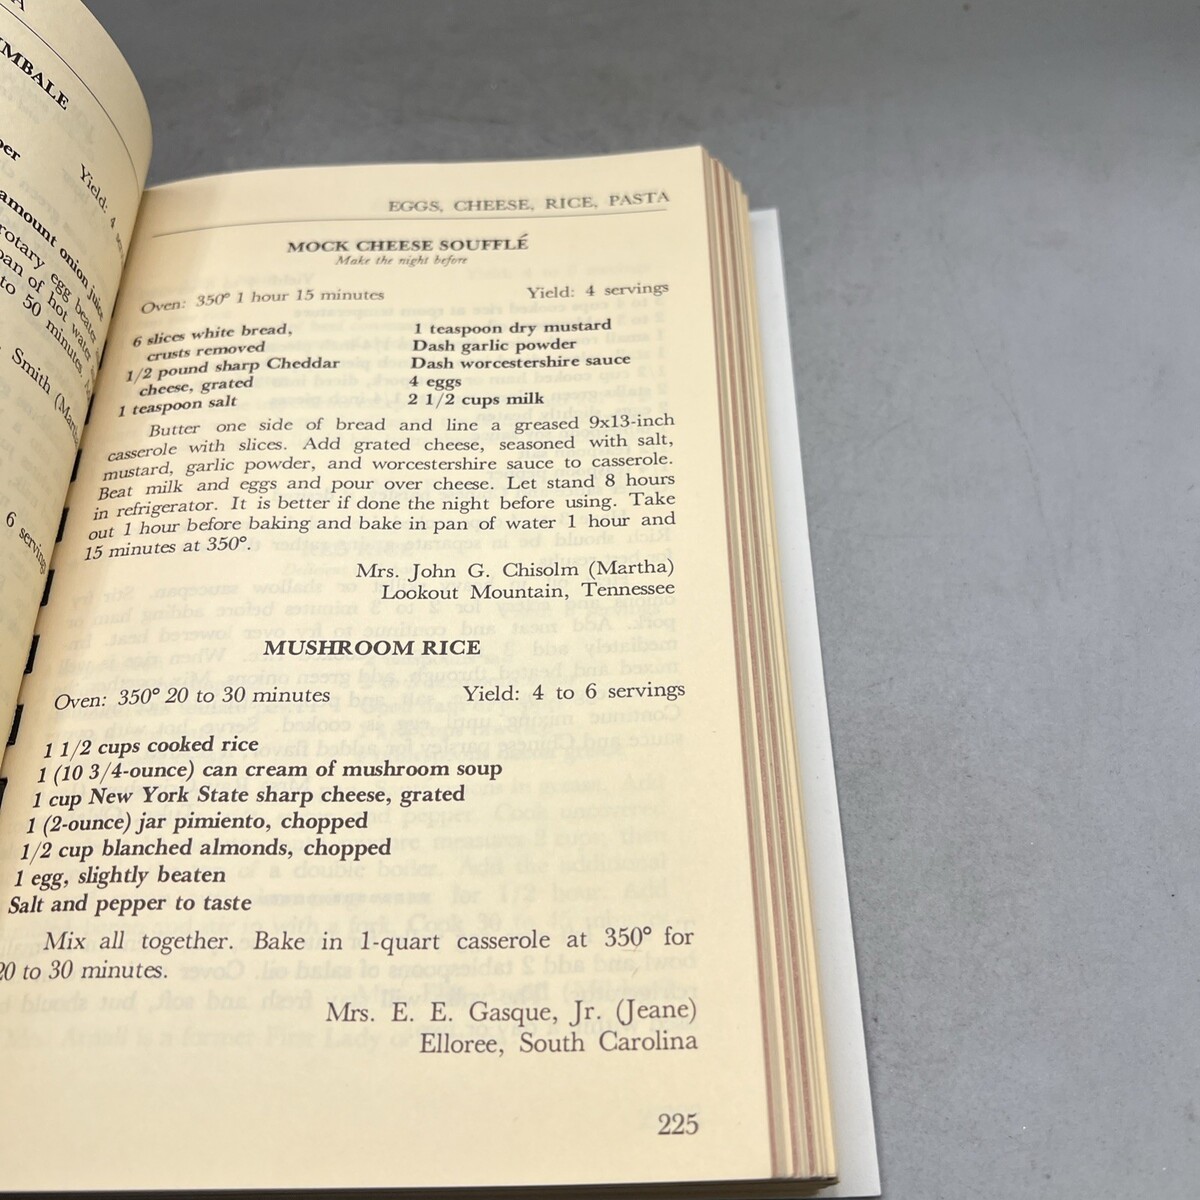 A
MBALE
per
Yield: 4
amount onion juice
rotary egg beater
pan of hot water
to 50 minutes.
Smith (Martha
6 servings
EGGS, CHEESE, RICE, PASTA
MOCK CHEESE SOUFFLÉ
Make the night before
Oven: 350° 1 hour 15 minutes Yield: 4 servings
6 slices white bread,
crusts removed
1/2 pound sharp Cheddar
cheese, grated
1 teaspoon salt
1 teaspoon dry mustard
Dash garlic powder
Dash worcestershire sauce
4 eggs
2 1/2 cups milk
Butter one side of bread and line a greased 9x13-inch
casserole with slices. Add grated cheese, seasoned with salt,
mustard, garlic powder, and worcestershire sauce to casserole.
Beat milk and eggs and pour over cheese. Let stand 8 hours
in refrigerator. It is better if done the night before using. Take
out 1 hour before baking and bake in pan of water 1 hour and
15 minutes at 350°.
Mrs. John G. Chisolm (Martha)
Lookout Mountain, Tennessee
MUSHROOM RICE
Oven: 350° 20 to 30 minutes Yield: 4 to 6 servings
1 1/2 cups cooked rice
1 (10 3/4-ounce) can cream of mushroom soup
1 cup New York State sharp cheese, grated
1 (2-ounce) jar pimiento, chopped
1/2 cup blanched almonds, chopped
1 egg, slightly beaten
Salt and pepper to taste
Mix all together. Bake in 1-quart casserole at 350° for
20 to 30 minutes.
Mrs. E. E. Gasque, Jr. (Jeane)
Elloree, South Carolina
225